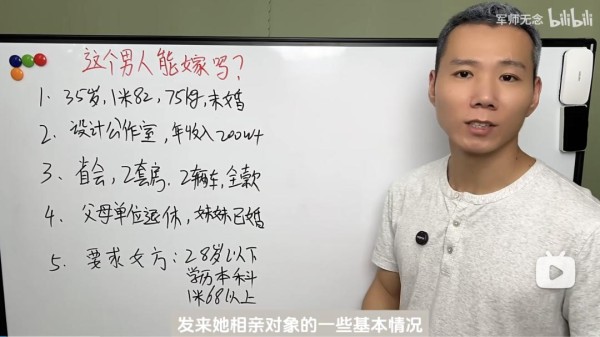 军师无念 bilibili
这个男人能嫁吗?
1. 35岁,1米82,75kg,未婚
2. 设计公作室,年收入200W+
3. 省会,2套房,2辆车,全款
4. 父母单位退休,妹妹已婚
5. 要求女方:28岁以下
学历本科
1米68以上
发来她相亲对象的一些基本情况